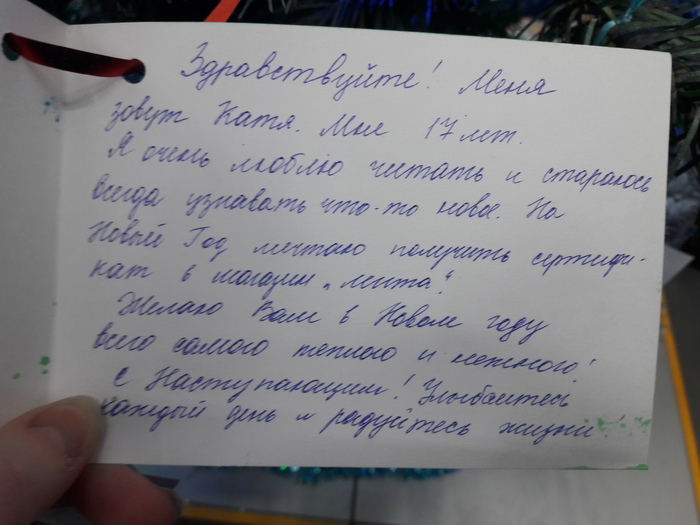 Здравствуйте! Меня
зовут Катя. Мне 17 лет.
Я очень люблю читать и стараюсь
всегда узнавать что-то новое. На
Новый Год мечтаю получить сертифи-
кат в магазин „лента“.
Желаю Вам в Новом году
всего самого теплого и нежного!
С Наступающим! Улыбайтесь
каждый день и радуйтесь жизни!